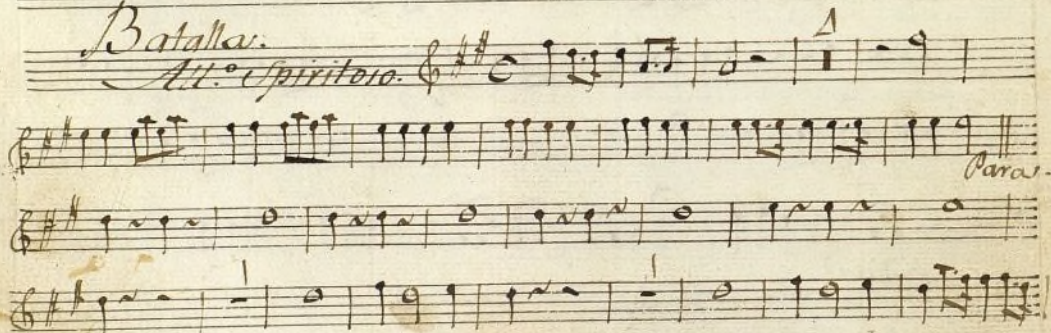 Batalla.
All.º Spiritoso.
Para.
1
1